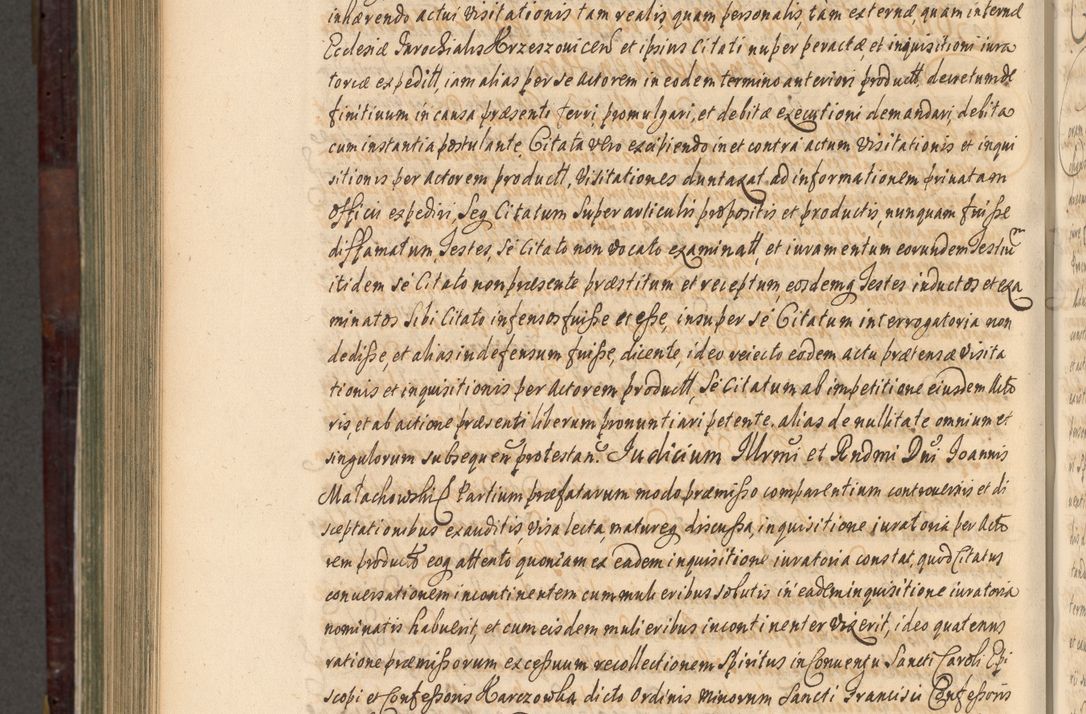 inhærendo actui Visitationis tam realis, quam personalis, tam externæ quam internæ
Ecclesiæ Parochialis Krzeszovicen et ipsius Citati nuper peractæ, et inquisitioni iura
toriæ expeditt, iam alias per se Actorem in eodem termino anteriori productt, decretum de
finitivum in causa præsenti ferri, promulgari, et debitæ executioni demandari, debita
cum instantia postulante. Citata vero excipiendo in et contra actum Visitationis et inqui
sitionis per Actorem productt, Visitationes duntaxat ad informationem privatam
Officii expediri, Seq Citatum Super articulis propositis et productis, nunquam fuisse
diffamatum, Testes, Se Citato non vocato examinatt et iuramentum eorundem Testium
itidem se Citato non præsente præstitum et receptum, eosdemq Testes inductos et exa
minatos Sibi Citato infensos fuisse et esse, insuper Se Citatum interrogatoria non
dedisse, et alias indefensum fuisse, dicente, ideo reiecto eodem actu prætensæ Visita
tionis et inquisitionis per Actorem productt, Se Citatum ab impetitione eiusdem Acto
ris, et ab actione præsenti liberum pronuntiari petente, alias de nullitate omnium et
singulorum subsequen protestan. Judicium Illrmi et Rndmi Dni Joannis
Małachowski E Partium præfatarum modo præmisso comparentium controversiis et di
sceptationibus exauditis visa lecta, matureq discussa, inquisitione iuratoria per Acto
rem producta eoq attento quoniam ex eadem inquisitione iuratoria constat, quod Citatus
conversationem incontinentem cum mulieribus solutis in eadem inquisitione iuratoria
nominatis habuerit, et cum eisdem mulieribus incontinenter vixerit, ideo quatenus
ratione præmissorum excessuum recollectionem Spiritus in Conventu Sancti Caroli Epi
scopi et Confessoris Karczowka dicto Ordinis Minorum Sancti Francisci Confessoris